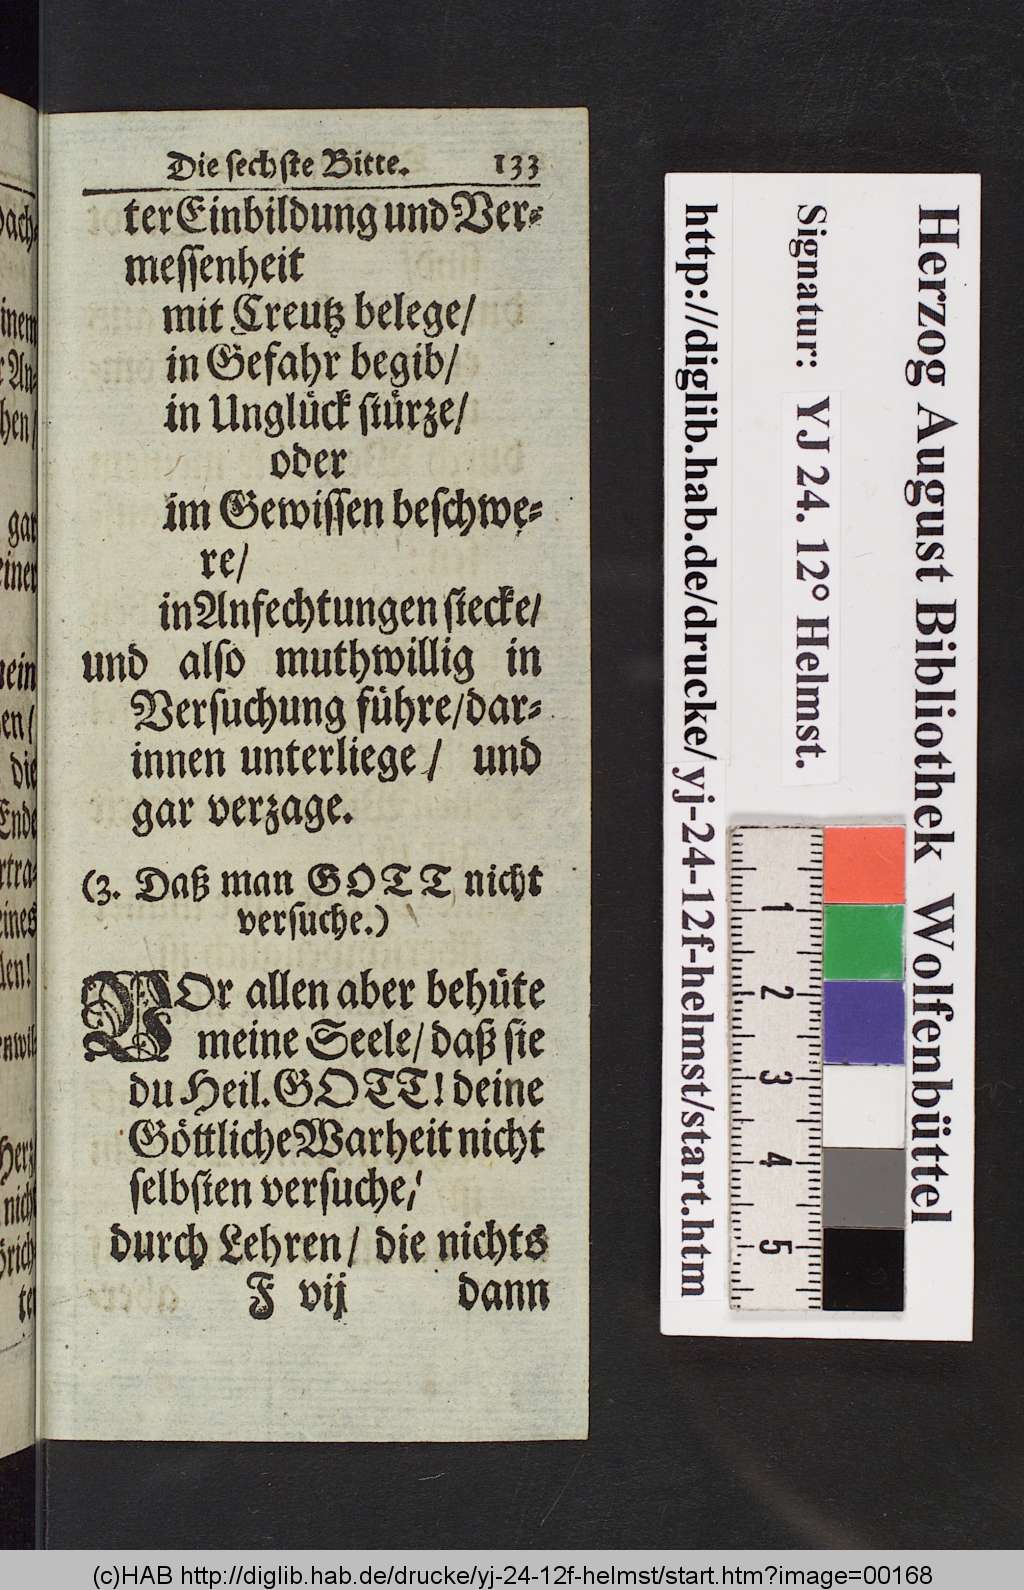 Die sechste Bitte. 133
ter Einbildung und Ver-
messenheit
mit Creutz belege/
in Gefahr begib/
in Unglück stürze/
oder
im Gewissen beschwe-
re/
in Anfechtungen stecke/
und also muthwillig in
Versuchung führe/ dar-
innen unterliege/ und
gar verzage.
(3. Daß man GOTT nicht
versuche.)
VOr allen aber behüte
meine Seele/ daß sie
du Heil. GOTT! deine
Göttliche Warheit nicht
selbsten versuche/
durch Lehren/ die nichts
F vij dann
Herzog August Bibliothek Wolfenbüttel
Signatur: YJ 24. 12° Helmst.
http://diglib.hab.de/drucke/yj-24-12f-helmst/start.htm
1
2
3
4
5
(c)HAB http://diglib.hab.de/drucke/yj-24-12f-helmst/start.htm?image=00168